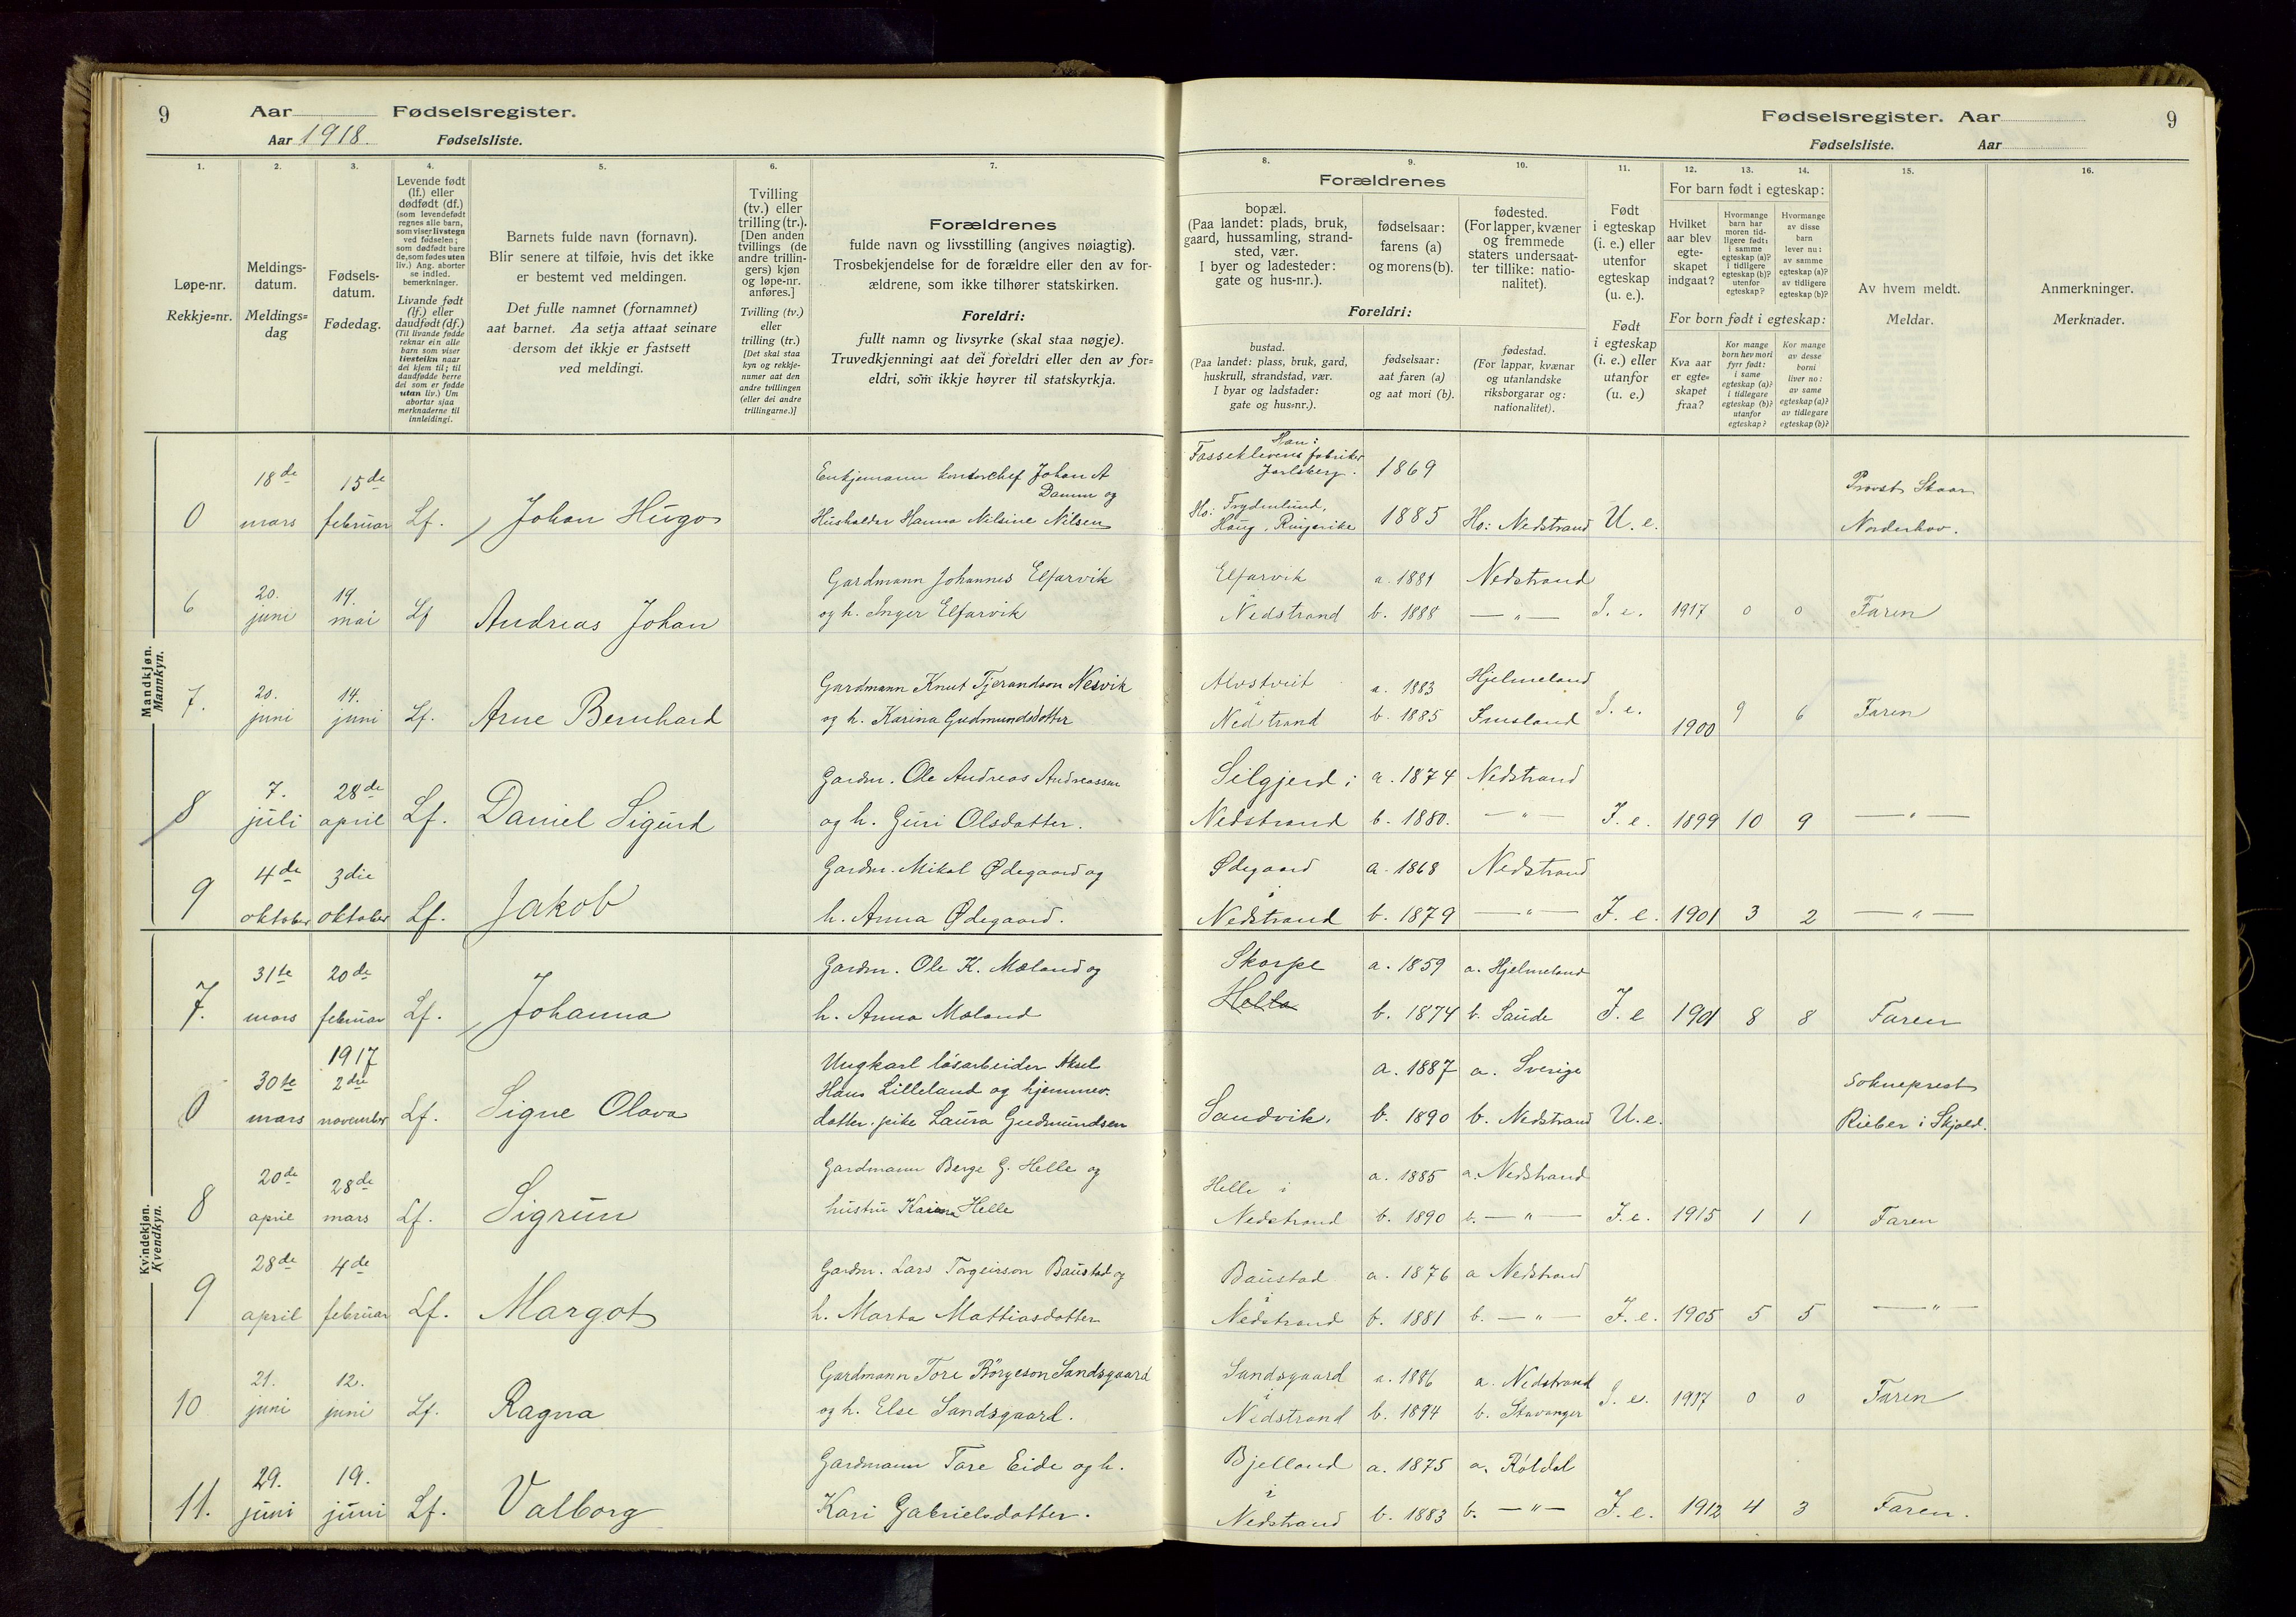 9
Aar
Fødselsregister.
Aar 1918.
Fødselsliste.
1.
Løpe-nr.
Rekkje=nr.
2.
Meldings-
datum.
Meldings=
dag
3.
Fødsels-
datum.
Fødedag.
4.
Levende født
(lf.) eller
dødfødt (df.)
(som levendefødt
regnes alle barn,
som viser livstegn
ved fødselen;
som dødfødt bare
de, som fødes uten
liv.) Ang. aborter
se indled.
bemerkninger.
Livande født
(lf.) eller
daudfødt (df.)
(Til livande fødde
reknar ein alle
barn som viser
livsteikn naar
dei kjem til; til
daudfødde berre
dei som er fødde
utan liv.) Um
abortar sjaa
merknaderne til
innleidingi.
5.
Barnets fulde navn (fornavn).
Blir senere at tilføie, hvis det ikke
er bestemt ved meldingen.
Det fulle namnet (fornamnet)
aat barnet. Aa setja attaat seinare
dersom det ikkje er fastsett
ved meldingi.
6.
Tvilling
(tv.) eller
trilling (tr.).
[Den anden
tvillings (de
andre trillin-
gers) kjøn
og løpe-nr.
anføres.]
Tvilling (tv.)
eller
trilling (tr.)
[Det skal staa
kyn og rekkje-
numer aat den
andre tvillingen
(eller dei andre
trillingarne.)]
7.
Forældrenes
fulde navn og livsstilling (angives nøiagtig).
Trosbekjendelse for de forældre eller den av for-
ældrene, som ikke tilhører statskirken.
Foreldri:
fullt namn og livsyrke (skal staa nøgje).
Truvedkjenningi aat dei foreldri eller den av for=
eldri, som ikkje høyrer til statskyrkja.
Mandkjøn.
Mannkyn.
0
18de
mars
15de
februar
Lf.
Johan Hugo
Enkjemann kontorchef Johan A
Damm og
Husholder Hanna Nilsine Nilsen
6
20.
juni
19.
mai
Lf
Andreas Johan
Gardmann Johannes Elfarvik
og h. Inger Elfarvik
7.
20.
juni
14.
juni
Lf.
Arne Bernhard
Gardmann Knut Tjerandson Nesvik
og h. Karina Gudmundsdotter
8
7.
juli
28de
april
Lf.
Daniel Sigurd
Gardm. Ole Andreas Andreassen
og h. Guri Olsdotter.
9
4de
oktober
3die
oktober
Lf.
Jakob
Gardm. Mikal Ødegaard og
h. Anna Ødegaard.
Kvindekjøn.
Kvendkyn.
7.
31te
mars
20de
februar
Lf.
Johanna
Gardm. Ole K. Mæland og
h. Anna Mæland
0
30te
mars
1917
2dre
november
Lf.
Signe Olava
Ungkarl løsarbeider Aksel
Hans Lilleland og hjemmev.
datter, pike Laura Gudmundsen
8
20de
april
28de
mars
Lf.
Sigrun
Gardmann Berge G. Helle og
hustru Kaia Helle
9
28de
april
4de
februar
Lf.
Margot
Gardm. Lars Torgeirson Baustad og
h. Marta Mattiasdotter
10
21.
juni
12.
juni
Lf.
Ragna
Gardmann Tore Börgeson Sandsgaard
og h. Else Sandsgaard.
11.
29.
juni
19.
juni
Lf.
Valborg
Gardmann Tore Eide og h.
Kari Gabrielsdotter.
Fødselsregister. Aar
9
Fødselsliste.
Aar
Forældrenes
8.
bopæl.
(Paa landet: plads, bruk,
gaard, hussamling, strand-
sted, vær.
I byer og ladesteder:
gate og hus-nr.).
Foreldri:
bustad.
(Paa landet: plass, bruk, gard,
huskrull, strandstad, vær.
I byar og ladstader:
gate og hus=nr.).
9.
fødselsaar:
farens (a)
og morens (b).
fødselsaar:
aat faren (a)
og aat mori (b).
10.
fødested.
(For lapper, kvæner
og fremmede
staters undersaat-
ter tillike: natio-
nalitet).
fødestad.
(For lappar, kvænar
og utanlandske
riksborgarar og:
nationalitet).
11.
Født
i egteskap
(i. e.) eller
utenfor
egteskap
(u. e.).
Født
i egteskap
(i. e.) eller
utanfor
(u. e.)
12.
13.
14.
For barn født i egteskap:
Hvilket
aar blev
egte-
skapet
indgaat?
Hvormange
barn har
moren tid-
ligere født:
i samme
egteskap (a)?
i tidligere
egteskap (b)?
utenfor
egteskap?
Hvormange
av disse
barn
lever nu:
av samme
egteskap (a)?
av tidligere
egteskap (b)?
For born født i egteskap:
Kva aar
er egte=
skapet
fraa?
Kor mange
born hev mori
fyrr født:
i same
egteskap (a)?
i tidlegare
egteskap (b)?
utanfor
egteskap?
Kor mange
av desse
borni
liver no:
av same
egteskap (a)?
av tidlegare
egteskap (b)?
15.
Av hvem meldt.
Meldar.
16.
Anmerkninger.
Merknader.
Han:
Fosseklevens fabriker
Jarlsberg.
1869
Ho: Frydenlund,
Haug, Ringerike
1885
Ho: Nedstrand
U. e.
Provst Skaar
Norderhov.
Elfarvik
a. 1881
Nedstrand
Nedstrand
b. 1888
— „ —
I. e.
1917
0
0
Faren
Alvstveit
i
a. 1883
Hjelmeland
Nedstrand
b. 1885
Imsland
I. e.
1900
9
6
Faren
Silgjerd i
a. 1874
Nedstrand
Nedstrand
b. 1880.
— „ —
I. e.
1899
10
9
— „ —
Ødegaard
i
a. 1868
Nedstrand
Nedstrand
b. 1879
— „ —
I. e.
1901
3
2
— „ —
Skorpe
a. 1859
a. Hjelmeland
Hella
b. 1874
b. Saude
I. e
1901
8
8
Faren
a. 1887
a. Sverige
Sandvik.
b. 1890
b. Nedstrand
U. e.
Sokneprest
Rieber i Skjold.
Helle i
a. 1885
a. Nedstrand
Nedstrand
b. 1890
b. — „ —
I. e.
1915
1
1
Faren
Baustad
i
a. 1876
a Nedstrand
Nedstrand
b. 1881
b. — „ —
I. e.
1905
5
5
— „ —
Sandsgaard
i
a. 1886
a. Nedstrand
Nedstrand
b. 1894
b. Stavanger
I. e.
1917
0
0
Faren
Bjelland
i
a. 1875
a. Röldal
Nedstrand
b. 1883
b. — „ —
I. e.
1912
4
3
Faren.